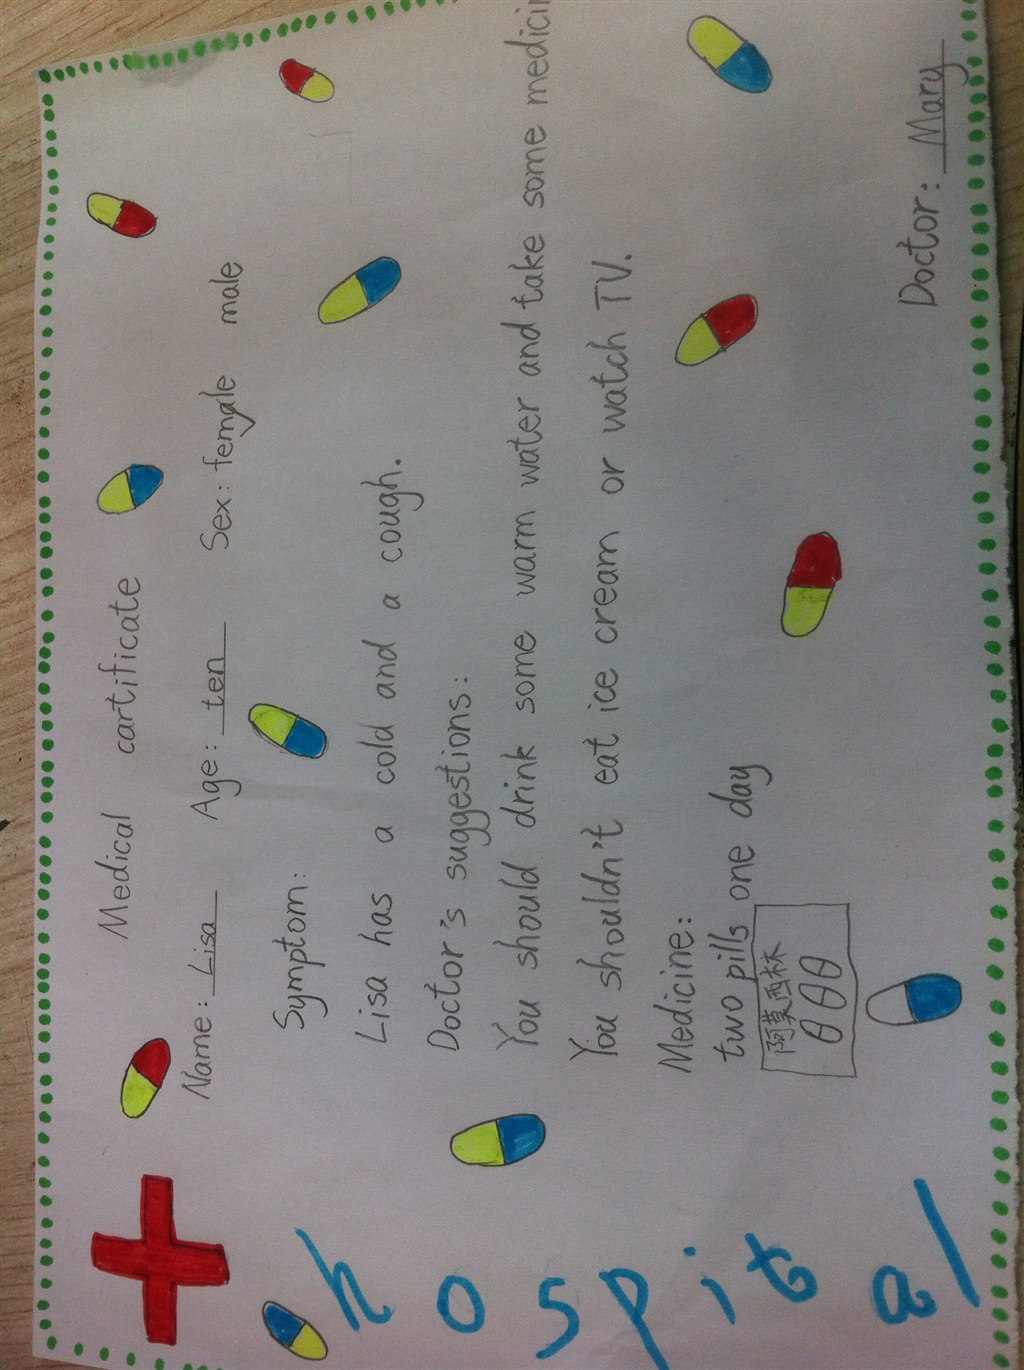 hospital
Medical cartificate
Name: Lisa Age: ten Sex: female male
Symptom:
Lisa has a cold and a cough.
Doctor's suggestions:
You should drink some warm water and take some medicin
You shouldn't eat ice cream or watch TV.
Medicine:
two pills one day
阿莫西林
Doctor: Mary